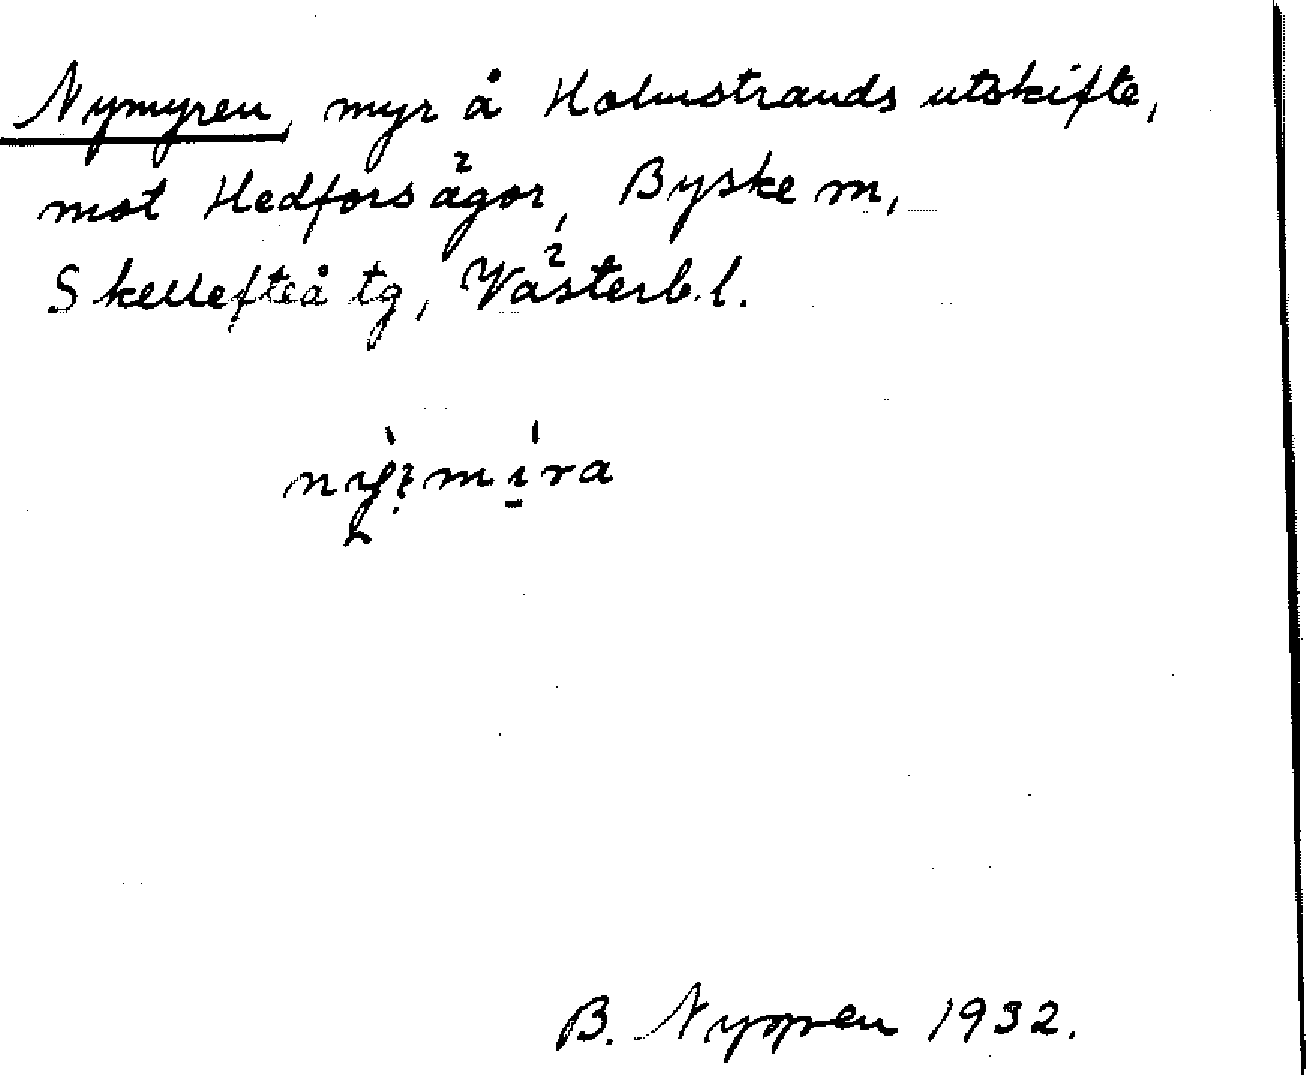 Nymyren, myr å Holmstrands utskifte,
mot Hedfors ägor, Byske m,
Skellefteå tg, Västerb. l.
B. Nygren 1932.